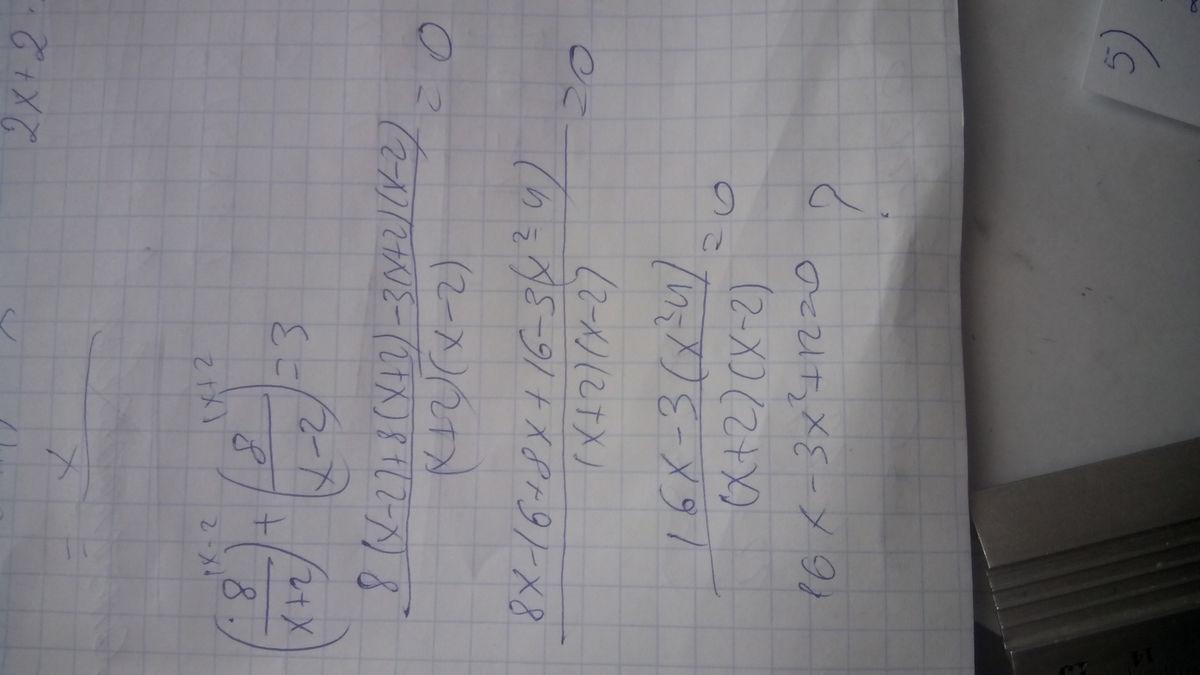 2x+2
= x
(8/(x+2))^(x-2 + (8/(x-2))^(x+2 = 3
8(x-2)+8(x+2)-3(x+2)(x-2) / (x+2)(x-2) = 0
8x-16+8x+16-3(x²-4) / (x+2)(x-2) = 0
16x-3(x²-4) / (x+2)(x-2) = 0
16x-3x²+12=0 ?
5)
14
13